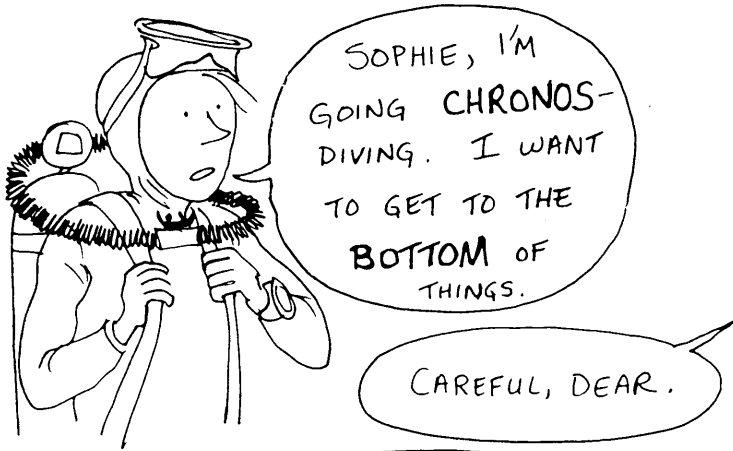 SOPHIE, I'M
GOING CHRONOS-
DIVING. I WANT
TO GET TO THE
BOTTOM OF
THINGS.
CAREFUL, DEAR.